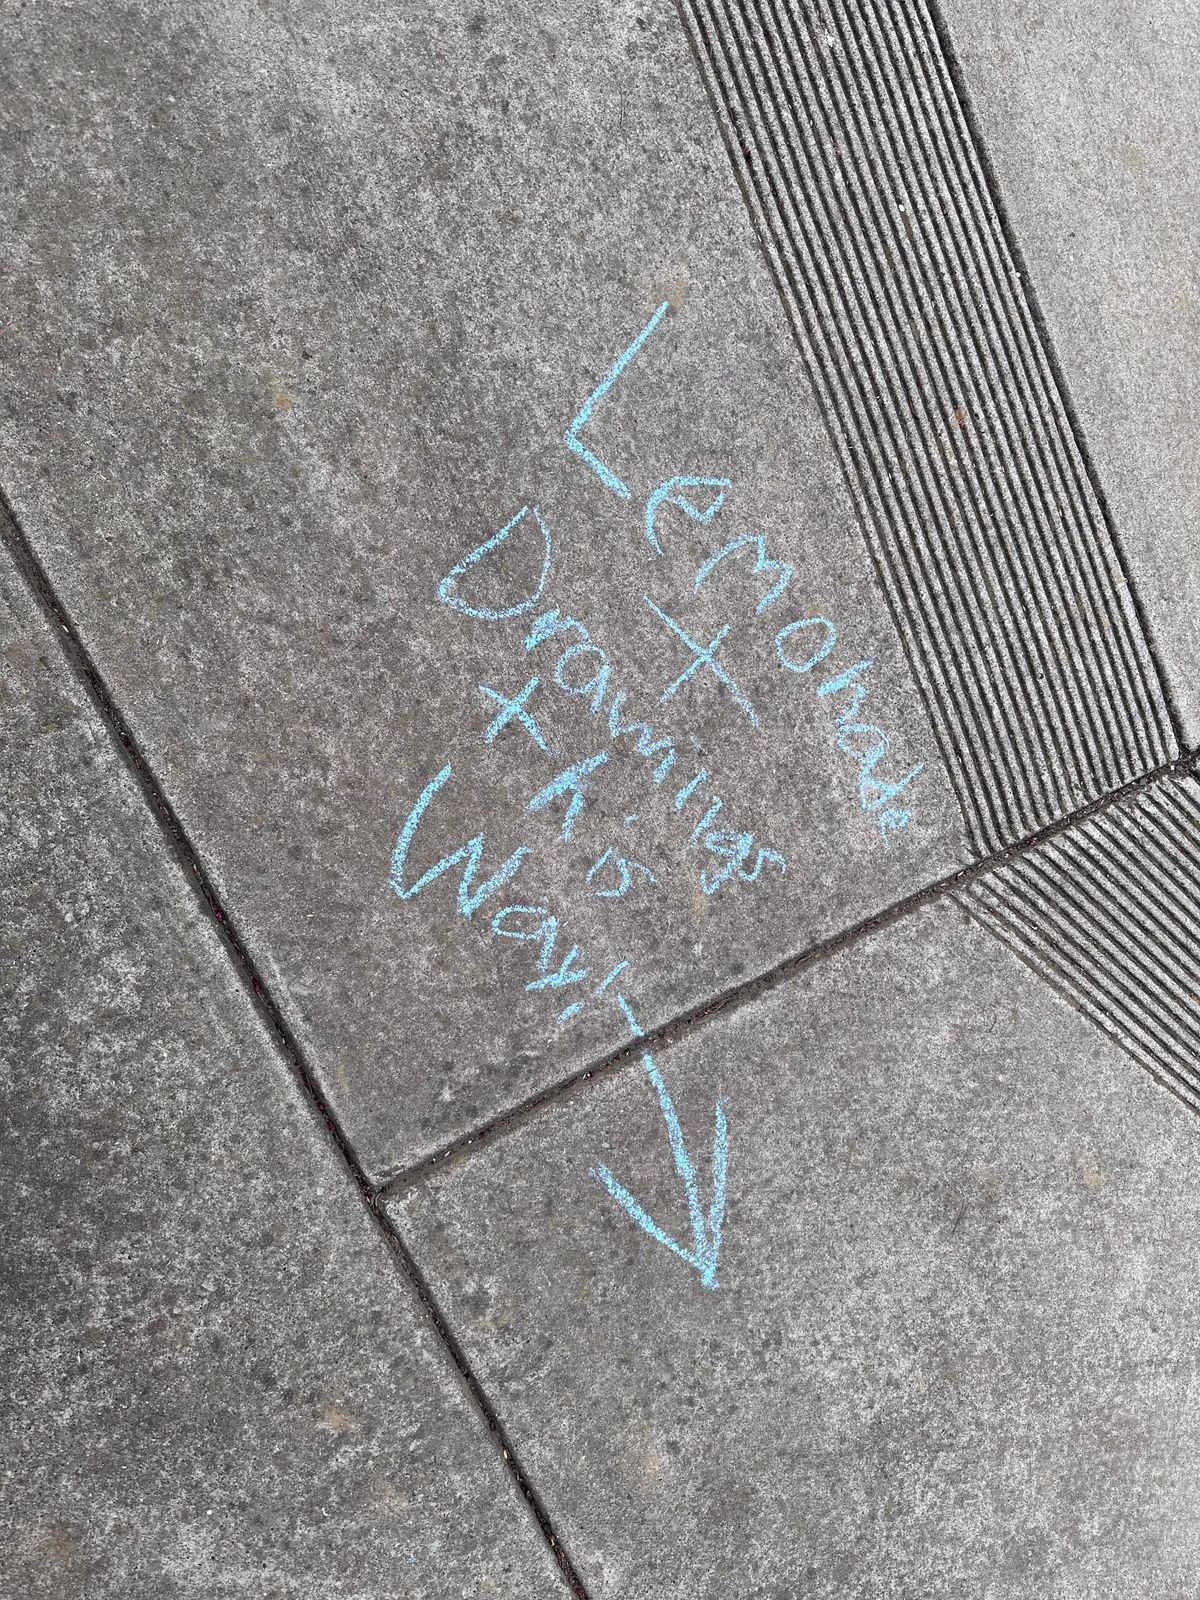 Lemonade
+
Drawings
this
Way!